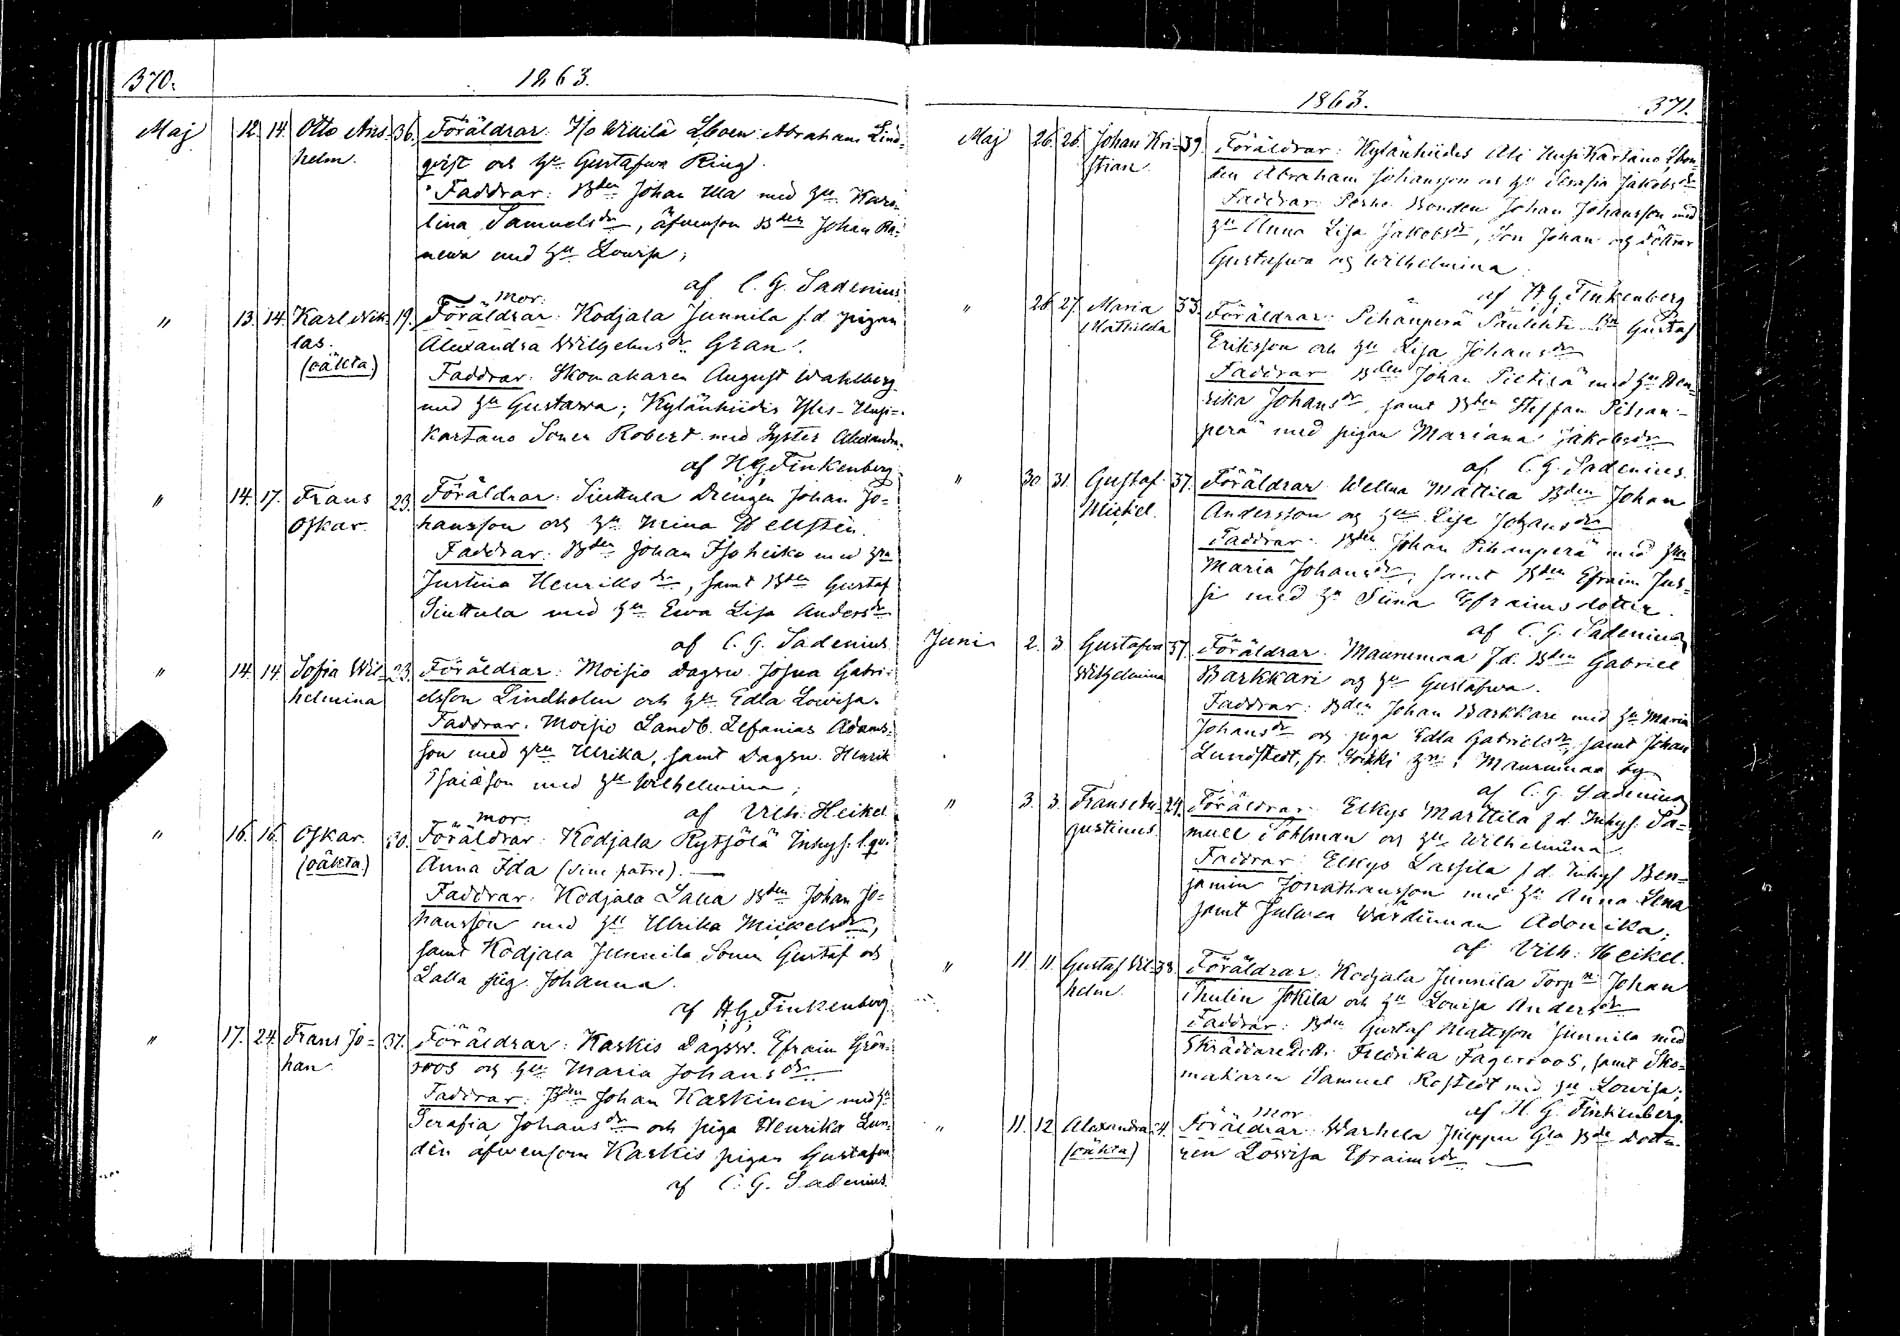 370.
1863.
Maj 12. 14. Otto Ans- 36. Föräldrar: Iso Wikilä Lboen Abraham Lind-
helm. qvist och Hu Gustafwa Ring.
Faddrar: Bden Johan Ula med Hu Karo-
lina Samuelsdr, äfvensom Bden Johan Ra-
newa med Hu Lowisa;
af C. G. Sadenius
mor:
" 13. 14. Karl Nik- 19. Föräldrar: Kodjala Junnila f.d pigan
las. Alexandra Wilhelmsdr Gran.
(oäkta.) Faddrar: Skomakaren August Wahlberg
med Hu Gustawa; Kylänhiidis Yles-Uusi-
kartano Sonen Robert med Syster Alexandra.
af H. G. Finkenberg
" 14. 17. Frans 23. Föräldrar: Siuttula Drengen Johan Jo-
Oskar. hansson och Hu Mina Hellstén.
Faddrar: Bden Johan Isoheiko med Hu
Justina Henriksdr, samt Bden Gustaf
Siuttula med Hu Ewa Lisa Andersdr
af C. G. Sadenius
" 14. 14. Sofia Wil- 23. Föräldrar: Moisio Dagsw. Josua Gabri-
helmina elsson Lindholm och Hu Edla Lowisa.
Faddrar: Moisio Landb. Zefanias Adams-
son med Hu Ulrika, samt Dagsw. Henrik
Isaiæson med Hu Wilhelmina;
af Vilh. Heikel
mor:
" 16. 16. Oskar. 30. Föräldrar: Kodjala Rytsölä Inhys. l. qv.
(oäkta.) Anna Ida (sine patre).
Faddrar: Kodjala Lalla Bden Johan Jo-
hansson med Hu Ulrika Mickelsdr,
samt Kodjala Junnila Sonen Gustaf och
Lalla pig. Johanna.
af H. G. Finkenberg
" 17. 24. Frans Jo- 37. Föräldrar: Kaskis Dagsw. Efraim Grön-
han roos och Hu Maria Johansdr
Faddrar: Bden Johan Kaskinen med Hu
Serafia Johansdr och piga Henrika Lun-
dén äfwensom Kaskis pigan Gustafva
af C. G. Sadenius.
1863.
371.
Maj 26. 26. Johan Kri- 39. Föräldrar: Kylänhiidis Ali Uusi Kartano Lbon-
stian. den Abraham Johansson och Hu Serafia Jakobsdr
Faddrar: Bonden Johan Johansson med
Hu Anna Lisa Jakobsdr, Son Johan och döttrar
Gustafwa och Wilhelmina
af H. G. Finkenberg
" 26 27. Maria 33. Föräldrar: Pihänperä Bn Gustaf
Mathilda Eriksson och Hu Lisa Johansdr
Faddrar Bden Johan Pietilä med Hu Hen-
rika Johansdr, samt Bden Steffan Pihän-
perä med pigan Mariana Jakobsdr
af C. G. Sadenius.
" 30 31. Gustaf 37. Föräldrar: Wellua Mattila Bden Johan
Mickel. Andersson och Hu Lisa Johansdr
Faddrar: Bden Johan Pihanperä med Hu
Maria Johansdr, samt Bden Efraim Jus-
si med Hu Siina Efraimsdotter.
af C. G. Sadenius
Juni 2. 3 Gustafwa 37. Föräldrar: Maurumaa f.d. Bden Gabriel
Wilhelmina Barkkari och Hu Gustafwa.
Faddrar: Bden Johan Barkkare med Hu Maria
Johansdr och piga Edla Gabrielsdr, samt Johan
Lundstedt, fr. Hu i Maurumaa by
af C. G. Sadenius
" 3. 3. Frans Au- 24. Föräldrar: Elkys Marttila f.d. Inhys. Sa-
gustinus. muel Pohlman och Hu Wilhelmina.
Faddrar: Elkys Lassila f.d. Inhys Ben-
jamin Jonathansson med Hu Anna Lena
samt Wärdinnan Adonika;
af Vilh. Heikel.
" 11. 11. Gustaf Wil- 38. Föräldrar: Kodjala Junnila Torpn Johan
helm. Thulin Jokila och Hu Lowisa Andersdr
Faddrar: Bden Gustaf Mattsson Junnila med
Skräddaredott. Fredrika Fagerroos, samt Sko-
makaren Samuel Rostedt med Hu Lowisa;
af H. G. Finkenberg.
mor
" 11. 12 Alexandra Föräldrar: Warhela Bde Dott-
(oäkta) ren Lovisa Efraimsdr